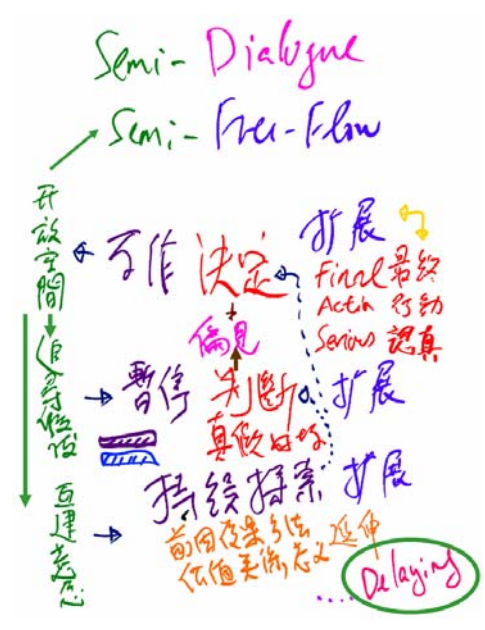 Semi- Dialogue
Semi- Free-Flow
开放空間
不作 決定 扩展
Final 最終
Action 行動
Serious 認真
偏見
追尋假设
暫停 判斷 扩展
真假好坏
持续探索 扩展
前因後果方法 延伸
价值关系意义
Delaying